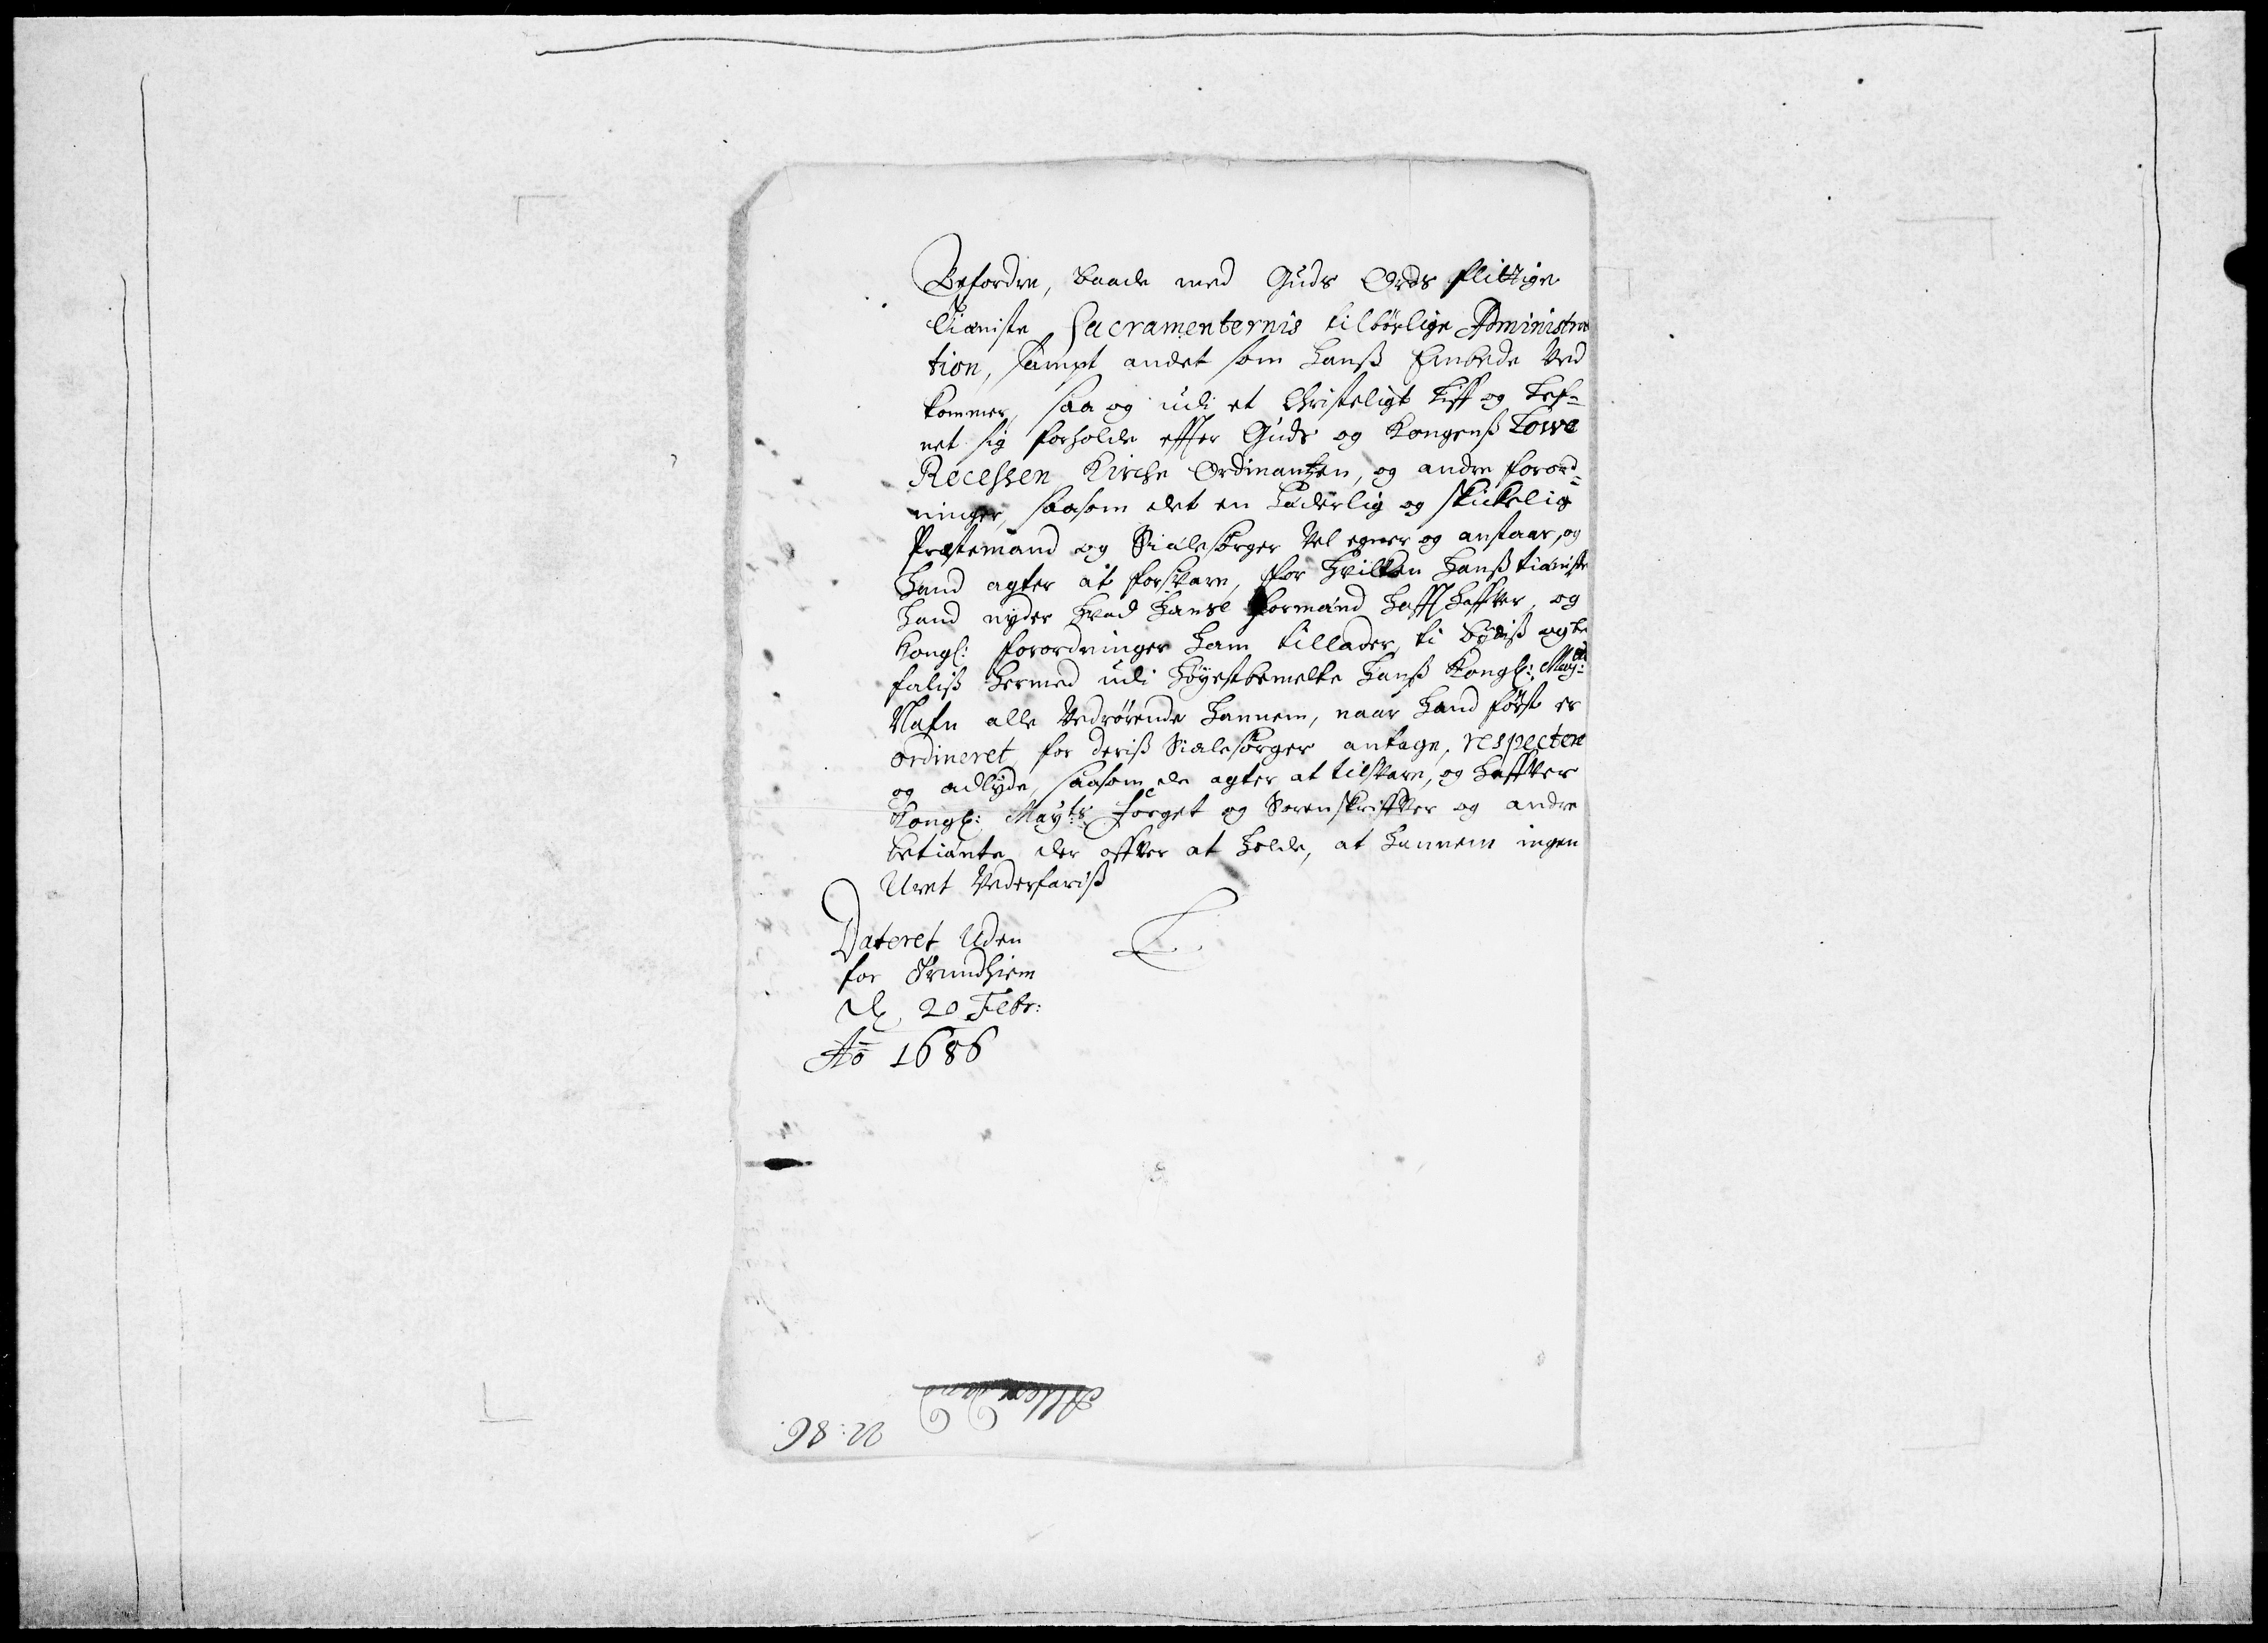 Befordre, baade med Guds Ords flittige
tiæniste Sacramenternis tilbörlige Administra
tion, sampt andet som hanß Embede ved
kommer, saa og udi et Christeligt Liff og Lef-
net sig forholde effter Guds og Kongenß Lowe
Recessen Kirche Ordinantzen, og andre forord-
ninger, saasom det en Gudelig og skickelig
Præstemand og Siælesörger vel egner og anstaar, og
hand agter at forsvare, for hvilken hanß tiæniste
hand nyder hvad hanse formand hafft haffver, og
Kongl: forordninger ham tillader, ti bydiß og be
faliß hermed udi höyestbemelte hanß Kongl: May:tz
Nafn alle vedrörende hannem, naar hand först er
ordineret for deriß Sialesörger antage, respectere
og adlyde, saasom de agter at tilsvare, og haffver
Kongl: May:ts foeget og Sorenskriffver og andre
betiante der offver at holde, at hannem ingen
Uret vederfariß
Dateret Uden
for Trundhiem
d. 20 Febr:
Ao 1686
22: 86.